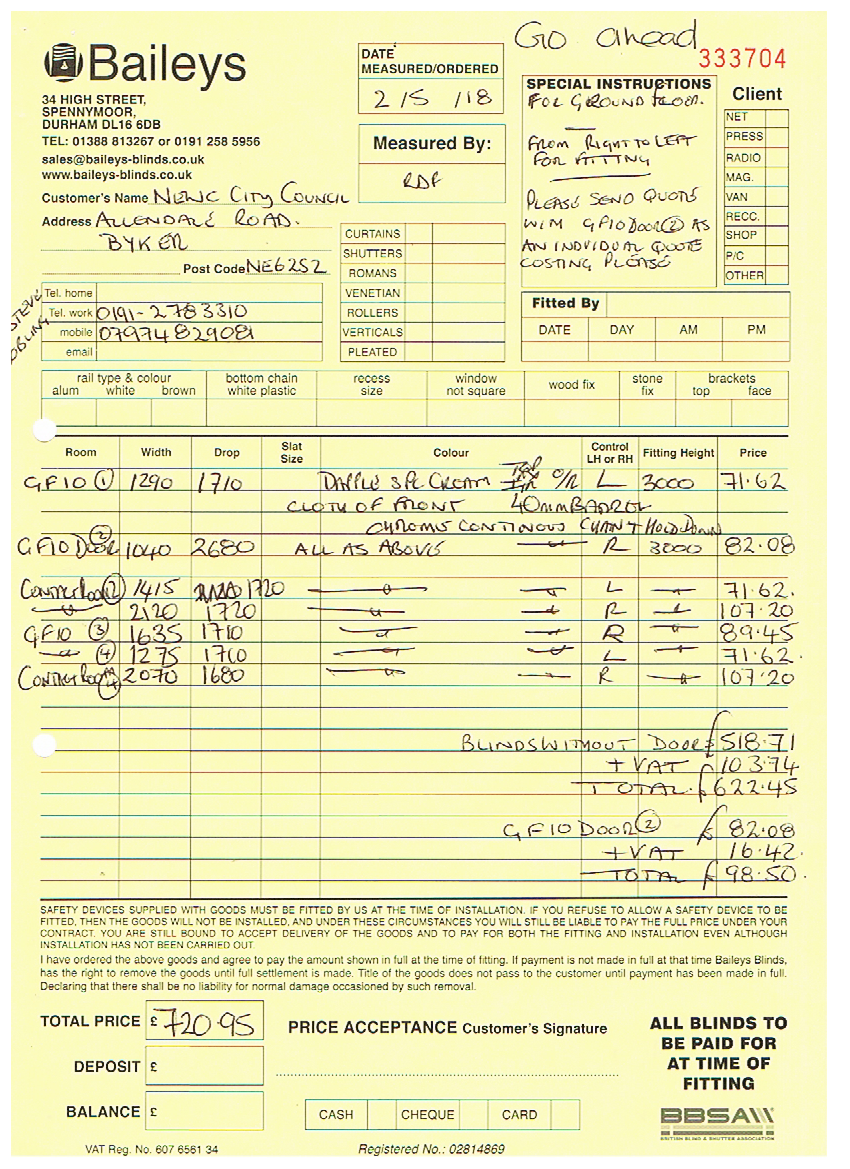 Go ahead
333704
Baileys
34 HIGH STREET,
SPENNYMOOR,
DURHAM DL16 6DB
TEL: 01388 813267 or 0191 258 5956
sales@baileys-blinds.co.uk
www.baileys-blinds.co.uk
DATE
MEASURED/ORDERED
2/5/18
Measured By:
RDF
SPECIAL INSTRUCTIONS
FOR GROUND FLOOR.
FROM RIGHT TO LEFT
FOR FITTING
PLEASE SEND QUOTE
WITH GF10 DOOR (2) AS
AN INDIVIDUAL QUOTE
COSTING PLEASE
Client
NET
PRESS
RADIO
MAG.
VAN
RECC.
SHOP
P/C
OTHER
Customer's Name NEWC CITY COUNCIL
Address ALLENDALE ROAD.
BYKER
Post Code NE6 2SZ
STEVE
Tel. home
Tel. work 0191-2783310
mobile 07974829081
email
CURTAINS
SHUTTERS
ROMANS
VENETIAN
ROLLERS
VERTICALS
PLEATED
Fitted By
DATE DAY AM PM
rail type & colour bottom chain recess window wood fix stone brackets
alum white brown white plastic size not square fix top face
Room Width Drop Slat Size Colour Control LH or RH Fitting Height Price
GF10 (1) 1290 1710 DAPPLE SPC CREAM O/R L 3000 71.62
CLOTH OF FRONT 40mm BARREL
CHROME CONTINOUS CHAIN + HOLD DOWN
GF10 DOOR (2) 1040 2680 ALL AS ABOVE — " — R 3000 82.08
(2) 1415 1720 — " — — " — L — " — 71.62.
— " — 2120 1720 — " — — " — R — " — 107.20
GF10 (3) 1635 1710 — " — — " — R — " — 89.45
— " — (4) 1275 1700 — " — — " — L — " — 71.62.
2070 1680 — " — — " — R — " — 107.20
BLINDS WITHOUT DOOR £518.71
+ VAT £103.74
TOTAL £622.45
GF10 DOOR (2) £82.08
+ VAT 16.42
TOTAL £98.50.
SAFETY DEVICES SUPPLIED WITH GOODS MUST BE FITTED BY US AT THE TIME OF INSTALLATION. IF YOU REFUSE TO ALLOW A SAFETY DEVICE TO BE
FITTED, THEN THE GOODS WILL NOT BE INSTALLED, AND UNDER THESE CIRCUMSTANCES YOU WILL STILL BE LIABLE TO PAY THE FULL PRICE UNDER YOUR
CONTRACT. YOU ARE STILL BOUND TO ACCEPT DELIVERY OF THE GOODS AND TO PAY FOR BOTH THE FITTING AND INSTALLATION EVEN ALTHOUGH
INSTALLATION HAS NOT BEEN CARRIED OUT.
I have ordered the above goods and agree to pay the amount shown in full at the time of fitting. If payment is not made in full at that time Baileys Blinds,
has the right to remove the goods until full settlement is made. Title of the goods does not pass to the customer until payment has been made in full.
Declaring that there shall be no liability for normal damage occasioned by such removal.
TOTAL PRICE £720.95
DEPOSIT £
BALANCE £
PRICE ACCEPTANCE Customer's Signature
CASH CHEQUE CARD
ALL BLINDS TO
BE PAID FOR
AT TIME OF
FITTING
BBSA
BRITISH BLIND & SHUTTER ASSOCIATION
VAT Reg. No. 607 6561 34
Registered No.: 02814869